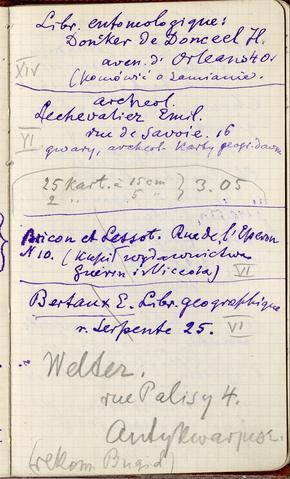 Libr. entomologique:
Donker de Donceel H.
aven. d'Orleans 40.
XIV
(Komówić o Lamianie)
archeol.
Lechevalier Emil.
rue de Savoie. 16
VI
gwary, archeol. Karty geogr. dawn
25 Kart. à 15 cm } 3.05
2 " 5 "
Bricon et Lessot. Rue de l'Eperon
N 10. (Kupił wydawnictwa
Guerin i Nicceta) VI
Bertaux E. Libr. geographique
r. Serpente 25. VI
Welter.
rue Palisy 4.
Antykwarjusz.
(rekom